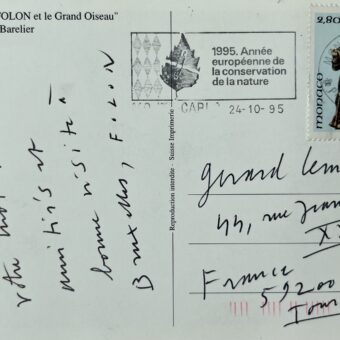 FOLON et le Grand Oiseau"
Barelier
1995. Année
européenne de
la conservation
de la nature
CARL
24-10-95
2,80
monaco
Reproduction interdite - Suisse Imprimerie
votre mot
amitiés et
bonne visite à
Bruxelles, FOLON
Gerard Lem
44, rue Jean
France
59200
Tour